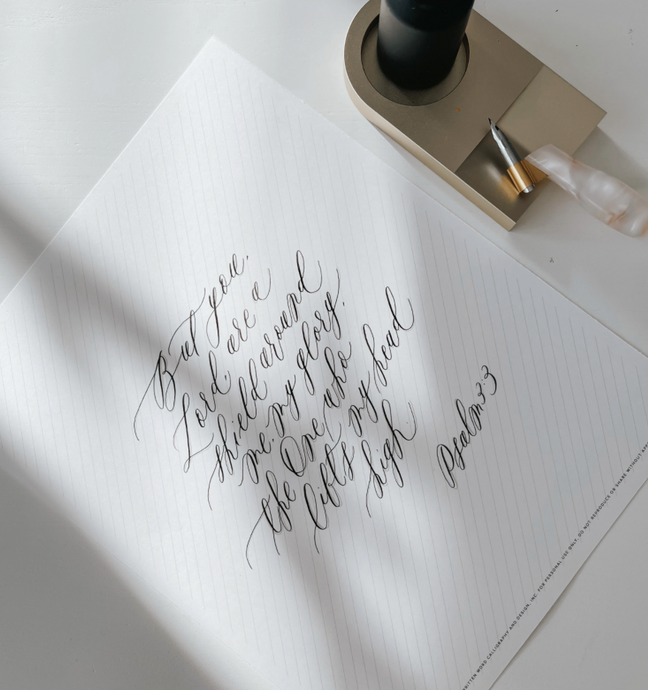 But you,
Lord, are a
shield around
me, my glory,
the One who
lifts my head
high.
Psalm 3:3
WRITTEN WORD CALLIGRAPHY AND DESIGN, INC. FOR PERSONAL USE ONLY. DO NOT REPRODUCE OR SHARE WITHOUT